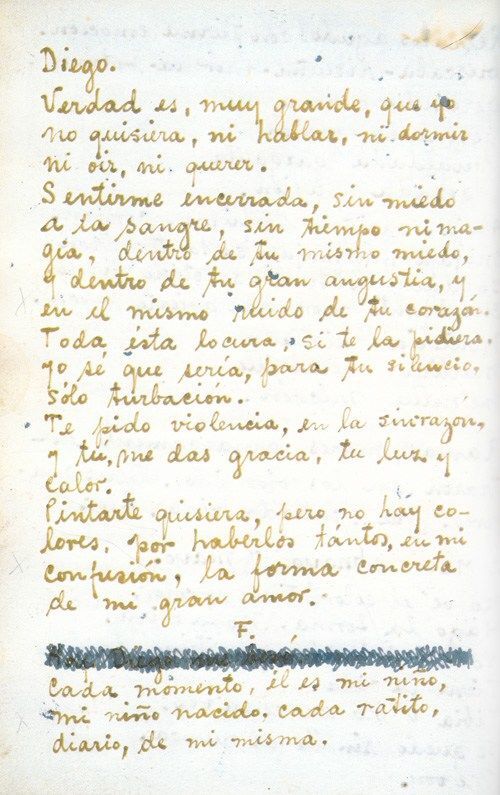 Diego.
Verdad es, muy grande, que yo
no quisiera, ni hablar, ni dormir
ni oir, ni querer.
Sentirme encerrada, sin miedo
a la sangre, sin tiempo ni ma-
gia, dentro de tu mismo miedo,
y dentro de tu gran angustia, y
en el mismo ruido de tu corazón.
Toda ésta locura, si te la pidiera,
yo sé que sería, para tu silencio,
sólo turbación.
Te pido violencia, en la sinrazón,
y tú, me das gracia, tu luz y
calor.
Pintarte quisiera, pero no hay co-
lores, por haberlos tántos, en mi
confusión, la forma concreta
de mi gran amor.
F.
Hoy Diego me besó.
Cada momento, él es mi niño,
mi niño nacido, cada ratito,
diario, de mi misma.